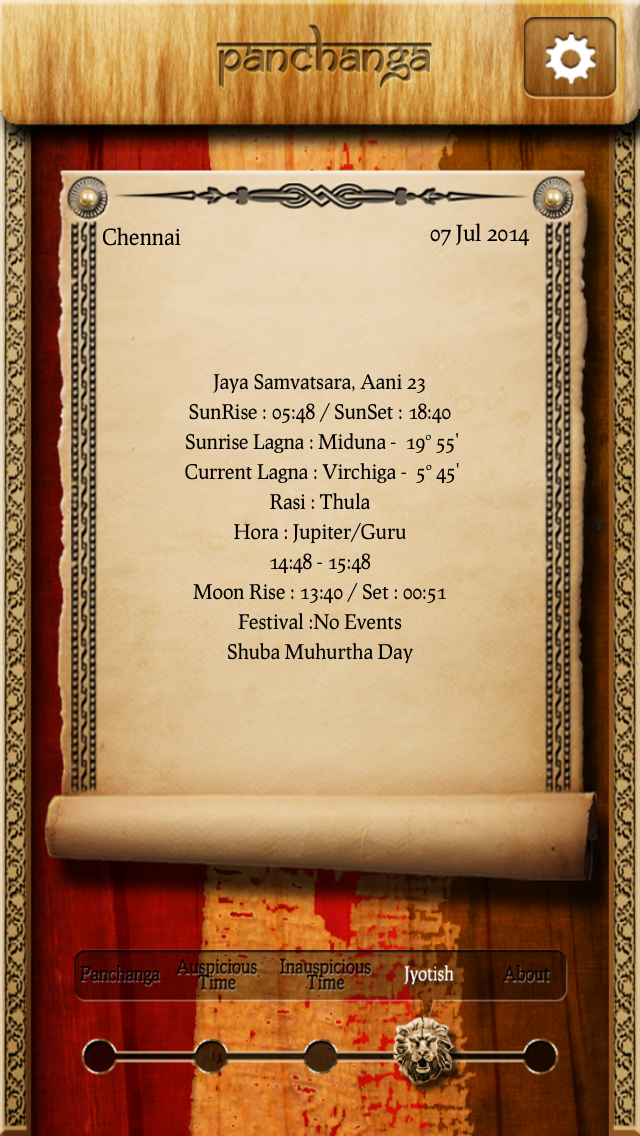 panchanga
Chennai
07 Jul 2014
Jaya Samvatsara, Aani 23
SunRise : 05:48 / SunSet : 18:40
Sunrise Lagna : Miduna - 19° 55'
Current Lagna : Virchiga - 5° 45'
Rasi : Thula
Hora : Jupiter/Guru
14:48 - 15:48
Moon Rise : 13:40 / Set : 00:51
Festival :No Events
Shuba Muhurtha Day
Panchanga
Auspicious
Time
Inauspicious
Time
Jyotish
About